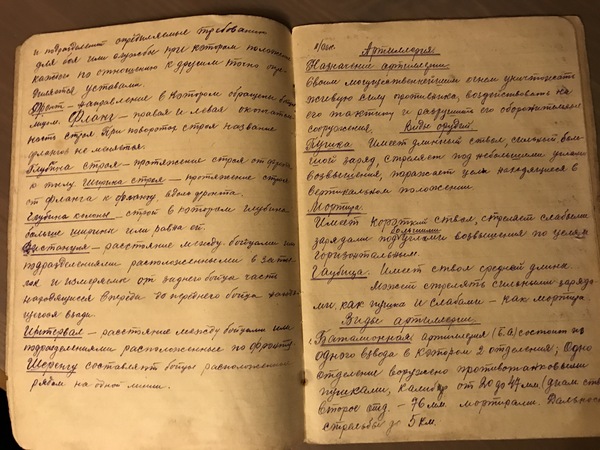 и подразделений определяемые требованием
для боя или службы при котором положение
каждого по отношению к другим точно опре-
деляется уставами.
Фронт - направление в котором обращены бойцы
лицом. Фланг - правая и левая оконечно
ность строя При поворотах строя название
флангов не меняется.
Глубина строя - протяжение строя от фронта
к тылу. Ширина строя - протяжение строя
от фланга к флангу вдоль фронта.
Глубина колоны - строй в котором глубина
больше ширины или равна ей.
Дистанция - расстояние между бойцами или
подразделениями расположенными в заты-
лок и измеряемое от заднего бойца части
находящиеся впереди до переднего бойца находя
щегося взади.
Интервал - расстояние между бойцами или
подразделениями расположенные по фронту.
Шеренгу составляют бойцы расположенные
рядом на одной линии.
Артиллерия
Назначение артиллерии.
Своим могущественнейшим огнем уничтожать
живую силу противника, воздействовать на
его технику и разрушать его оборонительные
сооружения. Виды орудий.
Пушка Имеет длинный ствол, сильный боль
шой заряд, стреляет под небольшими углами
возвышения, поражает цели находящиеся в
вертикальном положении.
Мортира
Имеет короткий ствол, стреляет слабыми
большими
зарядами под углами возвышения по целям
горизонтальным.
Гаубица. Имеет ствол средней длины.
Может стрелять сильными заряда-
ми как пушка и слабыми - как мортира.
Виды артиллерии.
Батальонная артиллерия (Б.А) состоит из
одного взвода в котором 2 отделения; Одно
отделение вооружено противотанковыми
пушками, калибр от 20 до 47 мм
второе отд. - 76 мм. мортирами. Дальность
стрельбы до 5 км.